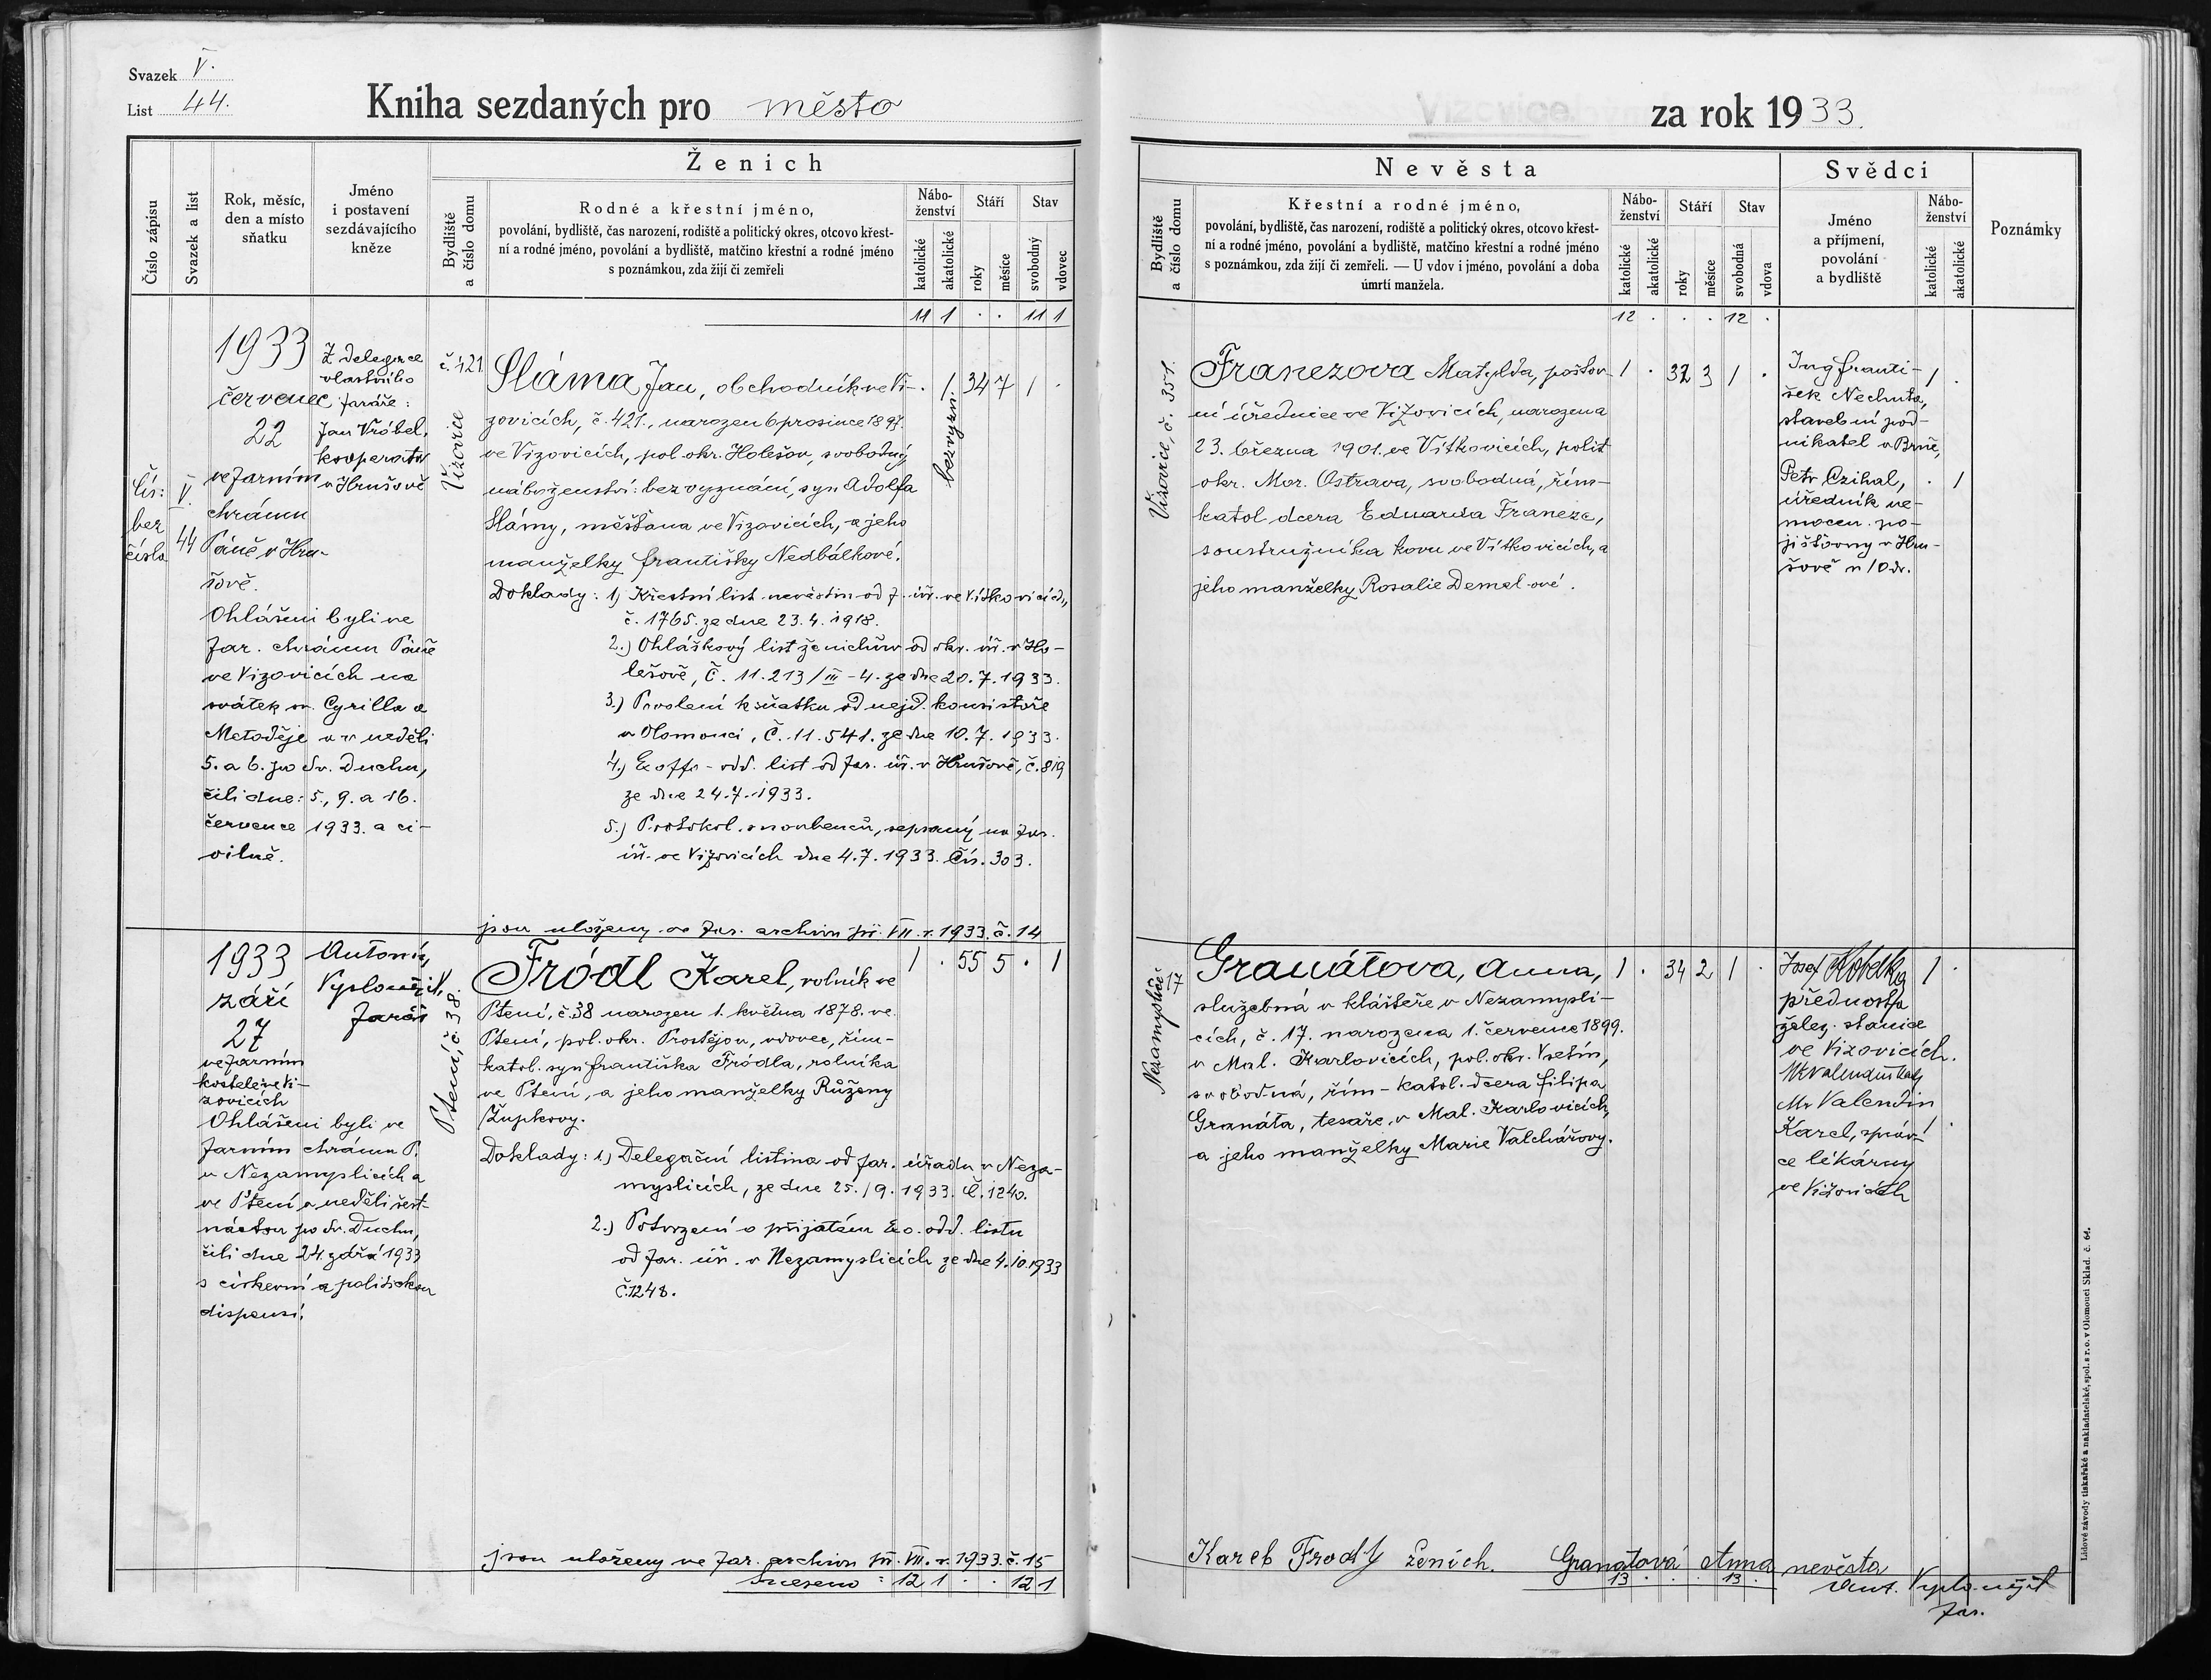 Svazek V.
List 44.
Kniha sezdaných pro město
Vizovice
za rok 1933.
Číslo zápisu
Svazek a list
Rok, měsíc,
den a místo
sňatku
Jméno
i postavení
sezdávajícího
kněze
Ženich
Bydliště
a číslo domu
Rodné a křestní jméno,
povolání, bydliště, čas narození, rodiště a politický okres, otcovo křest-
ní a rodné jméno, povolání a bydliště, matčino křestní a rodné jméno
s poznámkou, zda žijí či zemřeli
Nábo-
ženství
katolické
akatolické
Stáří
roky
měsíce
Stav
svobodný
vdovec
Nevěsta
Bydliště
a číslo domu
Křestní a rodné jméno,
povolání, bydliště, čas narození, rodiště a politický okres, otcovo křest-
ní a rodné jméno, povolání a bydliště, matčino křestní a rodné jméno
s poznámkou, zda žijí či zemřeli. — U vdov i jméno, povolání a doba
úmrtí manžela.
Nábo-
ženství
katolické
akatolické
Stáří
roky
měsíce
Stav
svobodná
vdova
Svědci
Jméno
a příjmení,
povolání
a bydliště
Nábo-
ženství
katolické
akatolické
Poznámky
11 1 . . 11 1
12 . . . 12 .
Čís:
bez
čísla
V.
44
1933
červenec
22
ve farním
chrámu
Páně v Hru-
šově.
Ohlášeni byli ve
far. chrámu Páně
ve Vizovicích na
svátek sv. Cyrilla a
Metoděje a v neděli
5. a 6. po Sv. Duchu,
čili dne: 5., 9. a 16.
července 1933. a ci-
vilně.
Z delegace
vlastního
faráře:
Jan Vróbel,
kooperátor
v Hrušově
č. 421.
Vizovice
Sláma Jan, obchodník ve Vi-
zovicích, č. 421., narozen 6 prosince 1897.
ve Vizovicích, pol. okr. Holešov, svobodný,
náboženství: bez vyznání, syn Adolfa
Slámy, měšťana ve Vizovicích, a jeho
manželky Františky Nedbálkové.
. 1 34 7 1 .
bez vyzn.
Doklady: 1) Křestní list nevěstin od f. úř. ve Vítkovicích,
č. 1765. ze dne 23. 4. 1918.
2.) Ohláškový list ženichův od okr. úř. v Ho-
lešově, Č. 11.213/III-4. ze dne 20. 7. 1933.
3.) Povolení k sňatku od nejd. konsistoře
v Olomouci, Č. 11.541. ze dne 10. 7. 1933.
4.) Ex offo - odd. list od far. úř. v Hrušově, č. 819
ze dne 24. 7. 1933.
5.) Protokol snoubenců, sepsaný na far.
úř. ve Vizovicích dne 4. 7. 1933. Čís. 303.
jsou uloženy ve far. archivu při. VII. r. 1933. č. 14
Vizovice, č. 351.
Franezova Matylda, poštov-
ní úřednice ve Vizovicích, narozena
23. března 1901. ve Vítkovicích, polit
okr. Mor. Ostrava, svobodná, řím-
katol. dcera Eduarda Franeze,
soustružníka kovu ve Vítkovicích, a
jeho manželky Rosalie Demel-ové.
1 . 32 3 1 .
Ing Franti-
šek Nechuta,
stavební pod-
nikatel v Brně,
1 .
Petr Czihal,
úředník ne-
mocen. po-
jišťovny v Hru-
šově
. 1
1933
září
27
ve farním
kostele ve Vi-
zovicích
Ohlášeni byli ve
farním chrámu P.
v Nezamyslicích a
ve Ptení v neděli šest-
náctou po Sv. Duchu,
čili dne 24. září 1933
s církevní a politickou
dispensí.
Antonín
Vyplouežil,
farář
Ptení, č. 38.
Fródl Karel, rolník ve
Ptení, č. 38 narozen 1. května 1878. ve
Ptení, pol. okr. Prostějov, vdovec, řím-
katol. syn Františka Fródla, rolníka
ve Ptení, a jeho manželky Růženy
Župkovy.
1 . 55 5 . 1
Doklady: 1) Delegační listina od far. úřadu v Neza-
myslicích, ze dne 25./9. 1933. Č. 1240.
2.) Potvrzení o přijatém Ex o. odd. listu
od far. úř. v Nezamyslicích ze dne 4. 10. 1933
Č. 1248.
jsou uloženy ve far. archivu při. VII. r. 1933. č. 15
Sneseno: 12 1 . . 12 1
Nezamyslice
17
Granátova, Anna,
služebná v klášteře v Nezamysli-
cích, č. 17. narozena 1. července 1899.
v Mal. Karlovicích, pol. okr. Vsetín,
svobodná, řím-katol. dcera Filipa
Granáta, tesaře, v Mal. Karlovicích,
a jeho manželky Marie Valchářovy.
1 . 34 2 1 .
Josef
přednosta
želez. stanice
ve Vizovicích.
1 .
Mr Valentin
Karel, správ-
ce lékárny
ve Vizovicích
1 .
Karel Frodl ženich. Granátová Anna nevěsta
13 . . . 13 .
Ant. Vyplouežil
far.
Lidové závody tiskařské a nakladatelské, spol. s r. o. v Olomouci Sklad. č. 64.